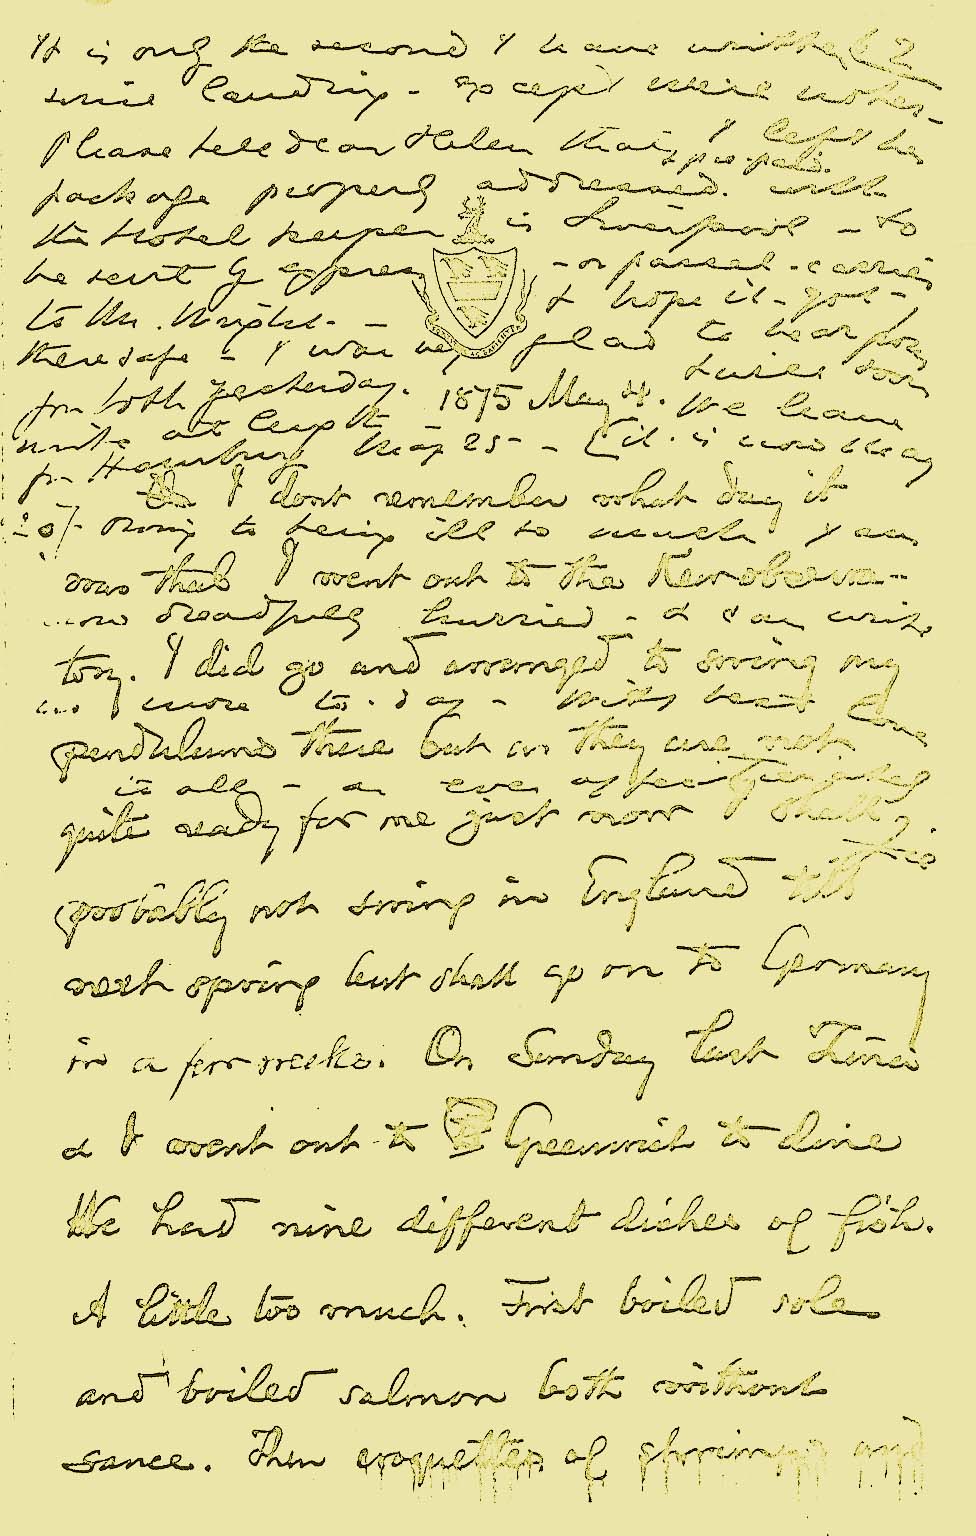 It is only the second I have written
since landing - except mere notes -
Please tell dear Helen that I left her
& pre-paid.
package properly addressed. with
the Hotel keeper in Liverpool - to
be sent by express - or parcel-carrier
to Mr. Wright - & hope it got
there safe - I was very glad to hear from
Louise soon
for both yesterday.
1875 May 4. We leave
write at length
for Hamburg May 25 - [it is now May
I dont remember what day it
owing to being ill so much & am
was that I went out to the Kew observa-
now dreadfully hurried - & can write
tory. I did go and arranged to swing my
no more to-day - With best love
pendulums there but as they are not
to all - as ever affectionately
quite ready for me just now I shall
probably not swing in England till
next spring but shall go on to Germany
in a few weeks. On Sunday last Zina
& I went out to Greenwich to dine
We had nine different dishes of fish.
A little too much. First boiled sole
and boiled salmon both without
sauce. Then croquettes of shrimps and